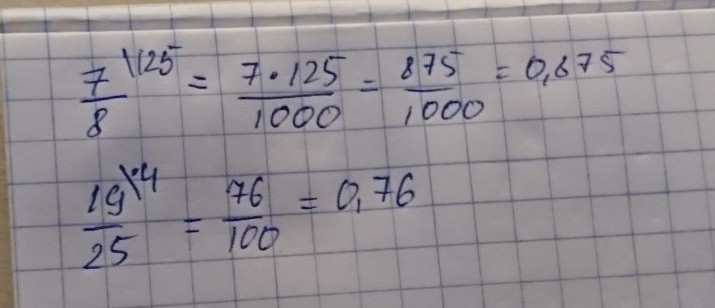 7/8 \125 = 7·125/1000 = 875/1000 = 0,875
19/25 \·4 = 76/100 = 0,76